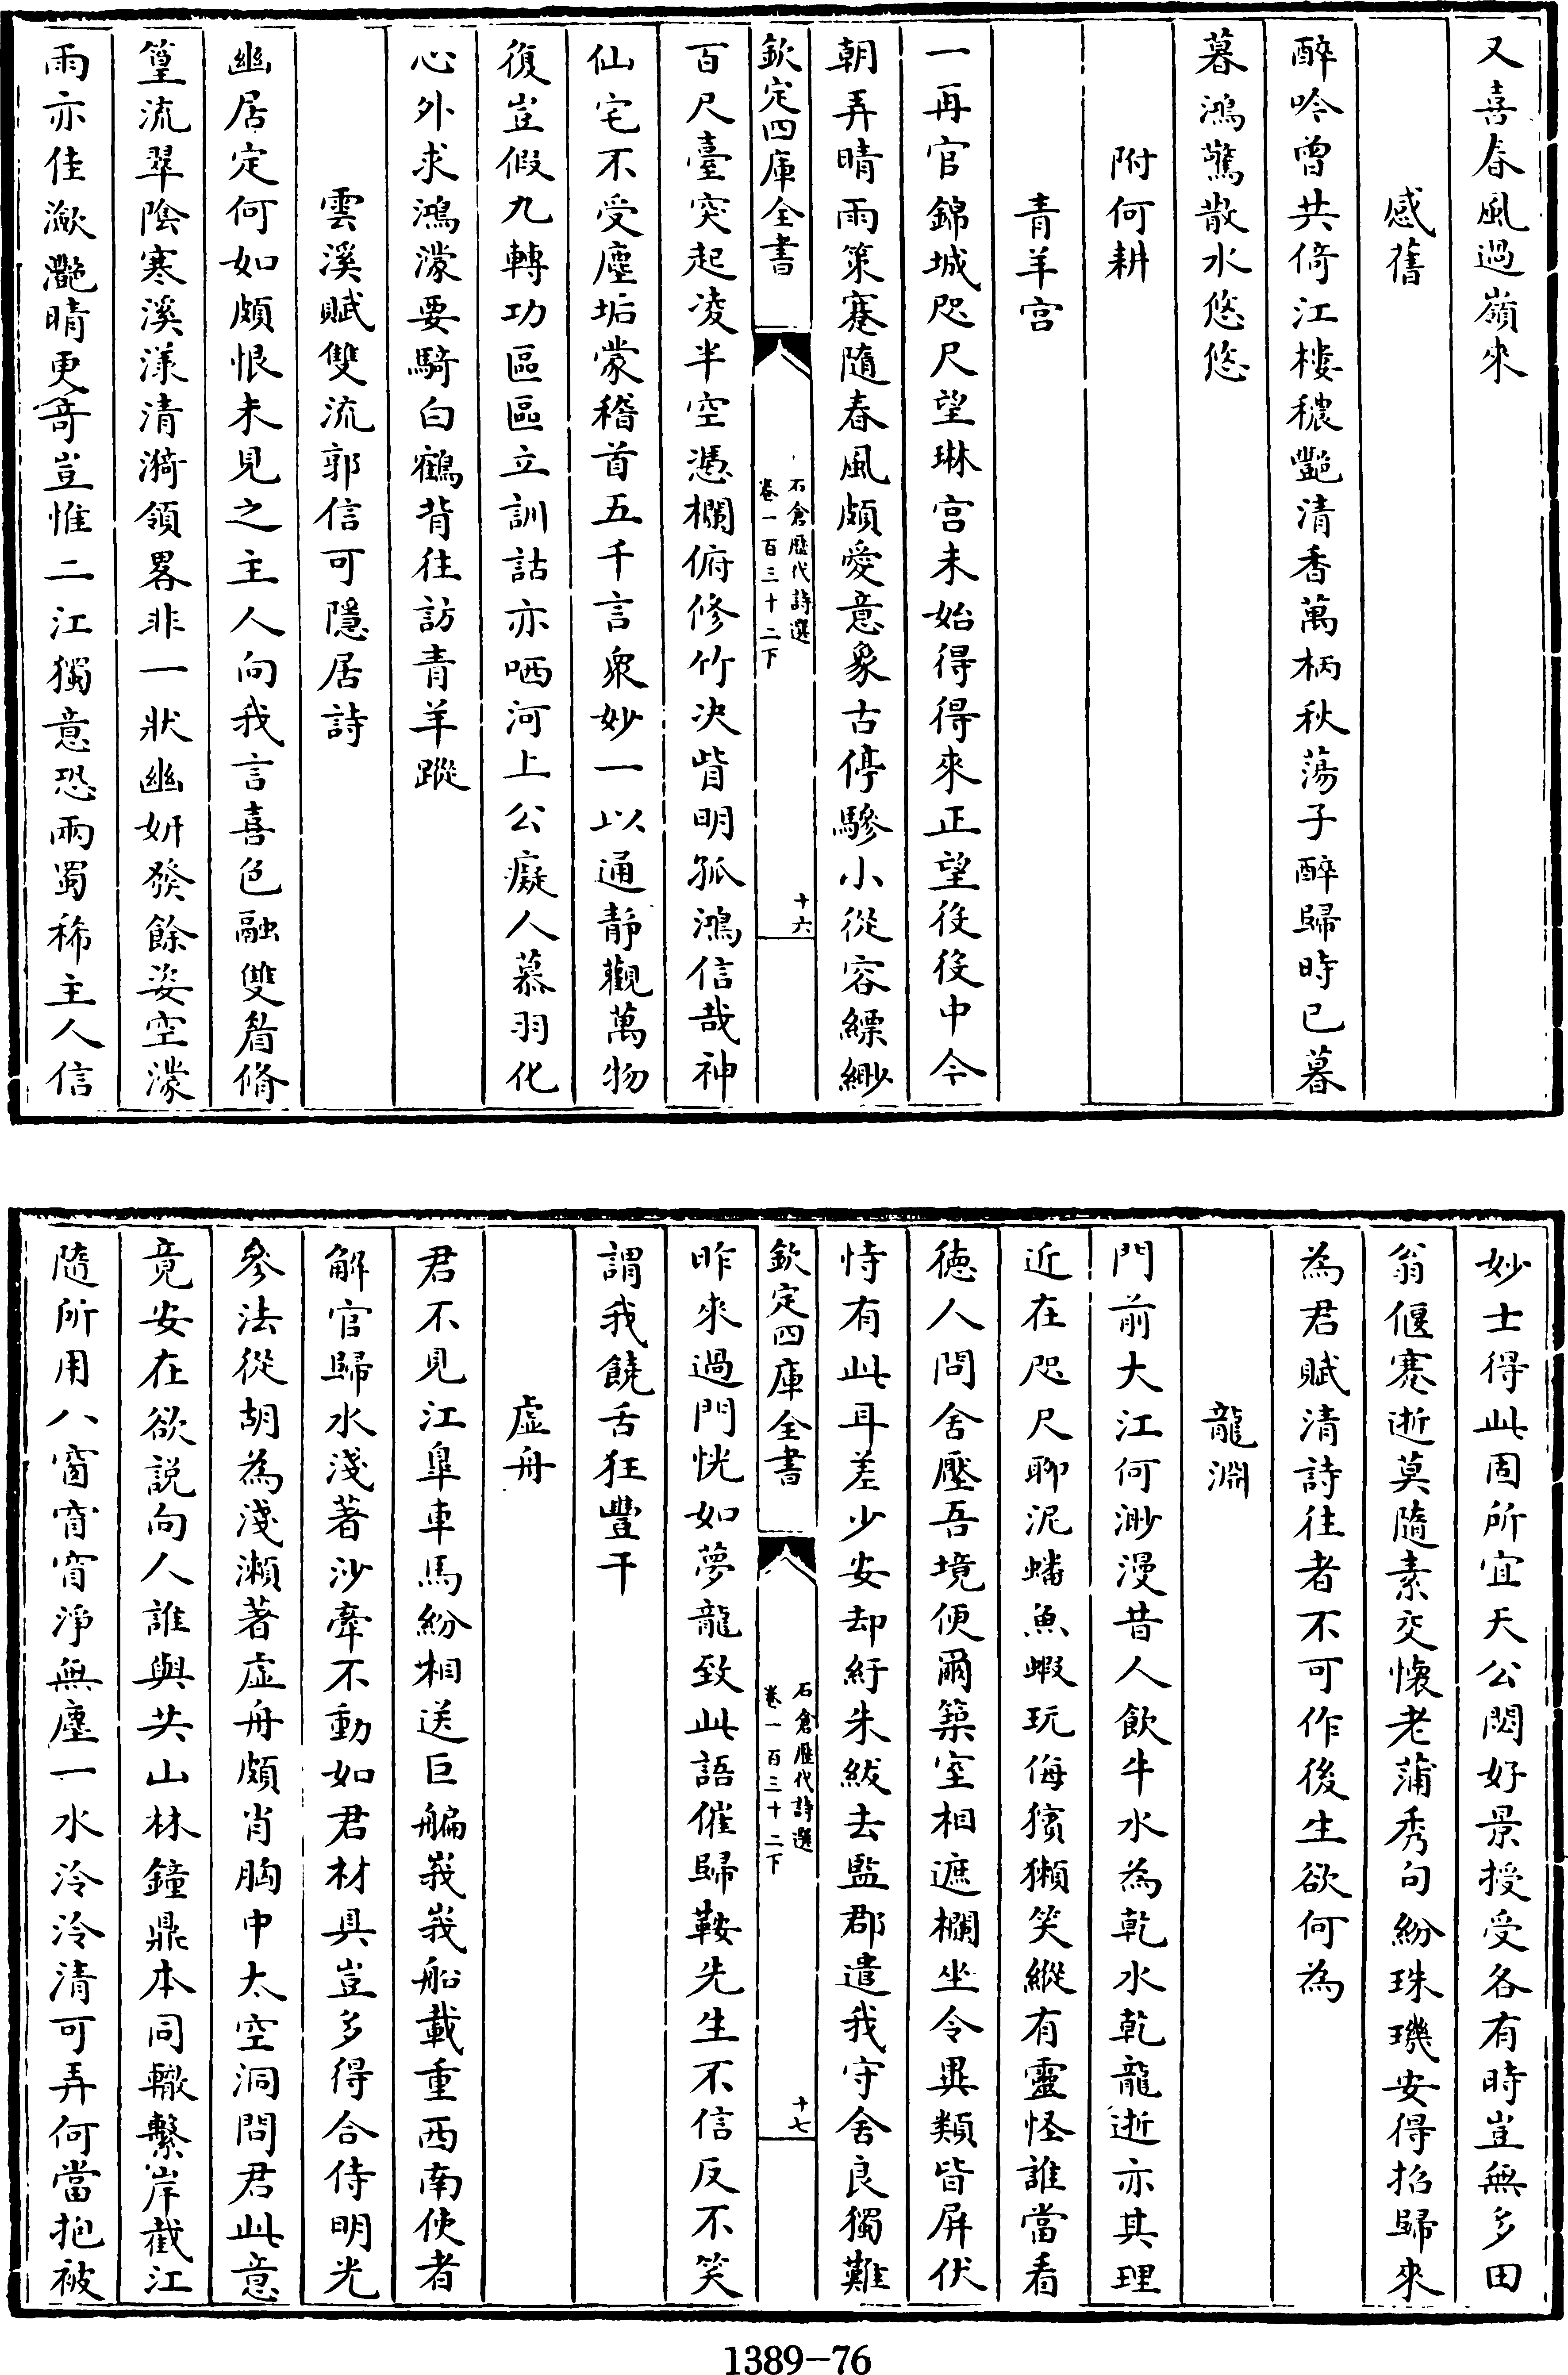 又喜春風過嶺來
感舊
醉吟曾共倚江樓穠艷清香萬柄秋蕩子醉歸時已暮
暮鴻驚散水悠悠
附何耕
青羊宫
一再官錦城咫尺望琳宫未始得得來正望役役中今
朝弄晴雨策蹇隨春風頗愛意象古停驂小從容縹緲
欽定四庫全書
石倉歷代詩選
卷一百三十二下
十六
百尺臺突起凌半空憑欄俯修竹决眥明孤鴻信哉神
仙宅不受塵垢蒙稽首五千言衆妙一以通静觀萬物
復豈假九轉功區區立訓詁亦哂河上公癡人慕羽化
心外求鴻濛要騎白鶴背往訪青羊蹤
雲溪賦雙流郭信可隱居詩
幽居定何如頗恨未見之主人向我言喜色融雙眉脩
篁流翠陰寒溪漾清漪領畧非一狀幽妍發餘姿空濛
雨亦佳瀲灧晴更奇豈惟二江獨意恐兩蜀稀主人信
妙士得此固所宜天公閟好景授受各有時豈無多田
翁偃蹇逝莫隨素交懷老蒲秀句紛珠璣安得招歸來
為君賦清詩往者不可作後生欲何為
龍淵
門前大江何渺漫昔人飲牛水為乾水乾龍逝亦其理
近在咫尺聊泥蟠魚蝦玩侮獱獺笑縱有靈怪誰當看
徳人問舍壓吾境便爾築室相遮欄坐令異類皆屏伏
恃有此耳差少安却紆朱紱去監郡遣我守舍良獨難
欽定四庫全書
石倉歷代詩選
卷一百三十二下
十七
昨來過門恍如夢龍致此語催歸鞍先生不信反不笑
謂我饒舌狂豐干
虚舟
君不見江臯車馬紛相送巨艑峩峩船載重西南使者
解官歸水淺著沙牽不動如君材具豈多得合侍明光
參法從胡為淺瀨著虚舟頗肖胸中太空洞問君此意
竟安在欲説向人誰與共山林鐘鼎本同轍繫岸截江
隨所用八窗窅窅淨無塵一水泠泠清可弄何當抱被
1389-76